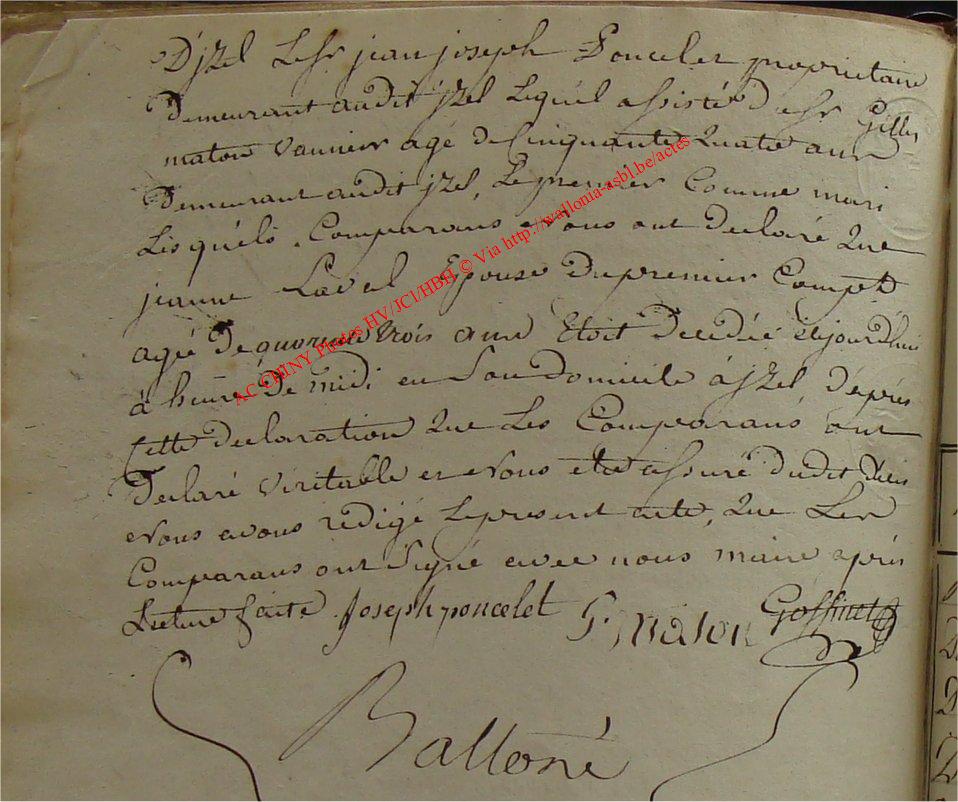 D'jzel Le Sr jean joseph Poncelet proprietaire
Demeurant audit jzel Lequel assisté De Sr Gilles
maton vannier agé de Cinquante Quatre ans
Demeurant audit jzel, Le premier Comme mari
Lesquels Comparans Nous ont declaré Que
jeanne Laval Epouse Du premier Compt
agée De quarante trois ans Etoit Decedée
à heure De midi en Son Domicile à jzel D'après
Cette declaration Que Les Comparans ont
Declaré Veritable et Nous etre assuré Dudit
Nous avons redigé Le present acte, Que Les
Comparans ont Signé avec nous maire après
Lecture faite Joseph poncelet G. maton Goffinet
Balloné
AC CHINY Photos HV/JCl/HBH © Via http://wallonia-asbl.be/actes